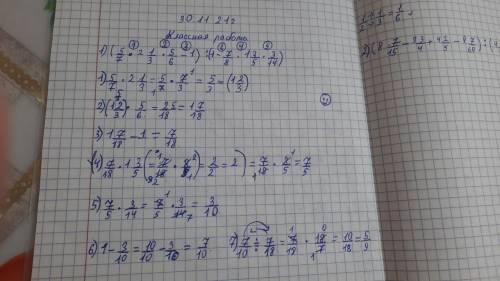 30.11.21г
Классная работа.
1) (5/7 · 2 1/3 · 5/6 - 1) : (1 - 7/8 · 1 3/5 · 3/14)
1) 5/7 · 2 1/3 = 5/7 · 7/3 = 5/3 = (1 2/3)
2) (1 2/3) · 5/6 = 25/18 = 1 7/18
3) 1 7/18 - 1 = 7/18
4) 7/18 · 1 3/5 ( = 7/18 · 8/5 = 2/2 = 2 ) = 7/18 · 8/5 = 7/5
5) 7/5 · 3/14 = 7/5 · 3/14 = 3/10
6) 1 - 3/10 = 10/10 - 3/10 = 7/10
7) 7/10 : 7/18 = 7/18 · 18/7 = 10/18 = 5/9
1/2 · 1/3 = 1/6